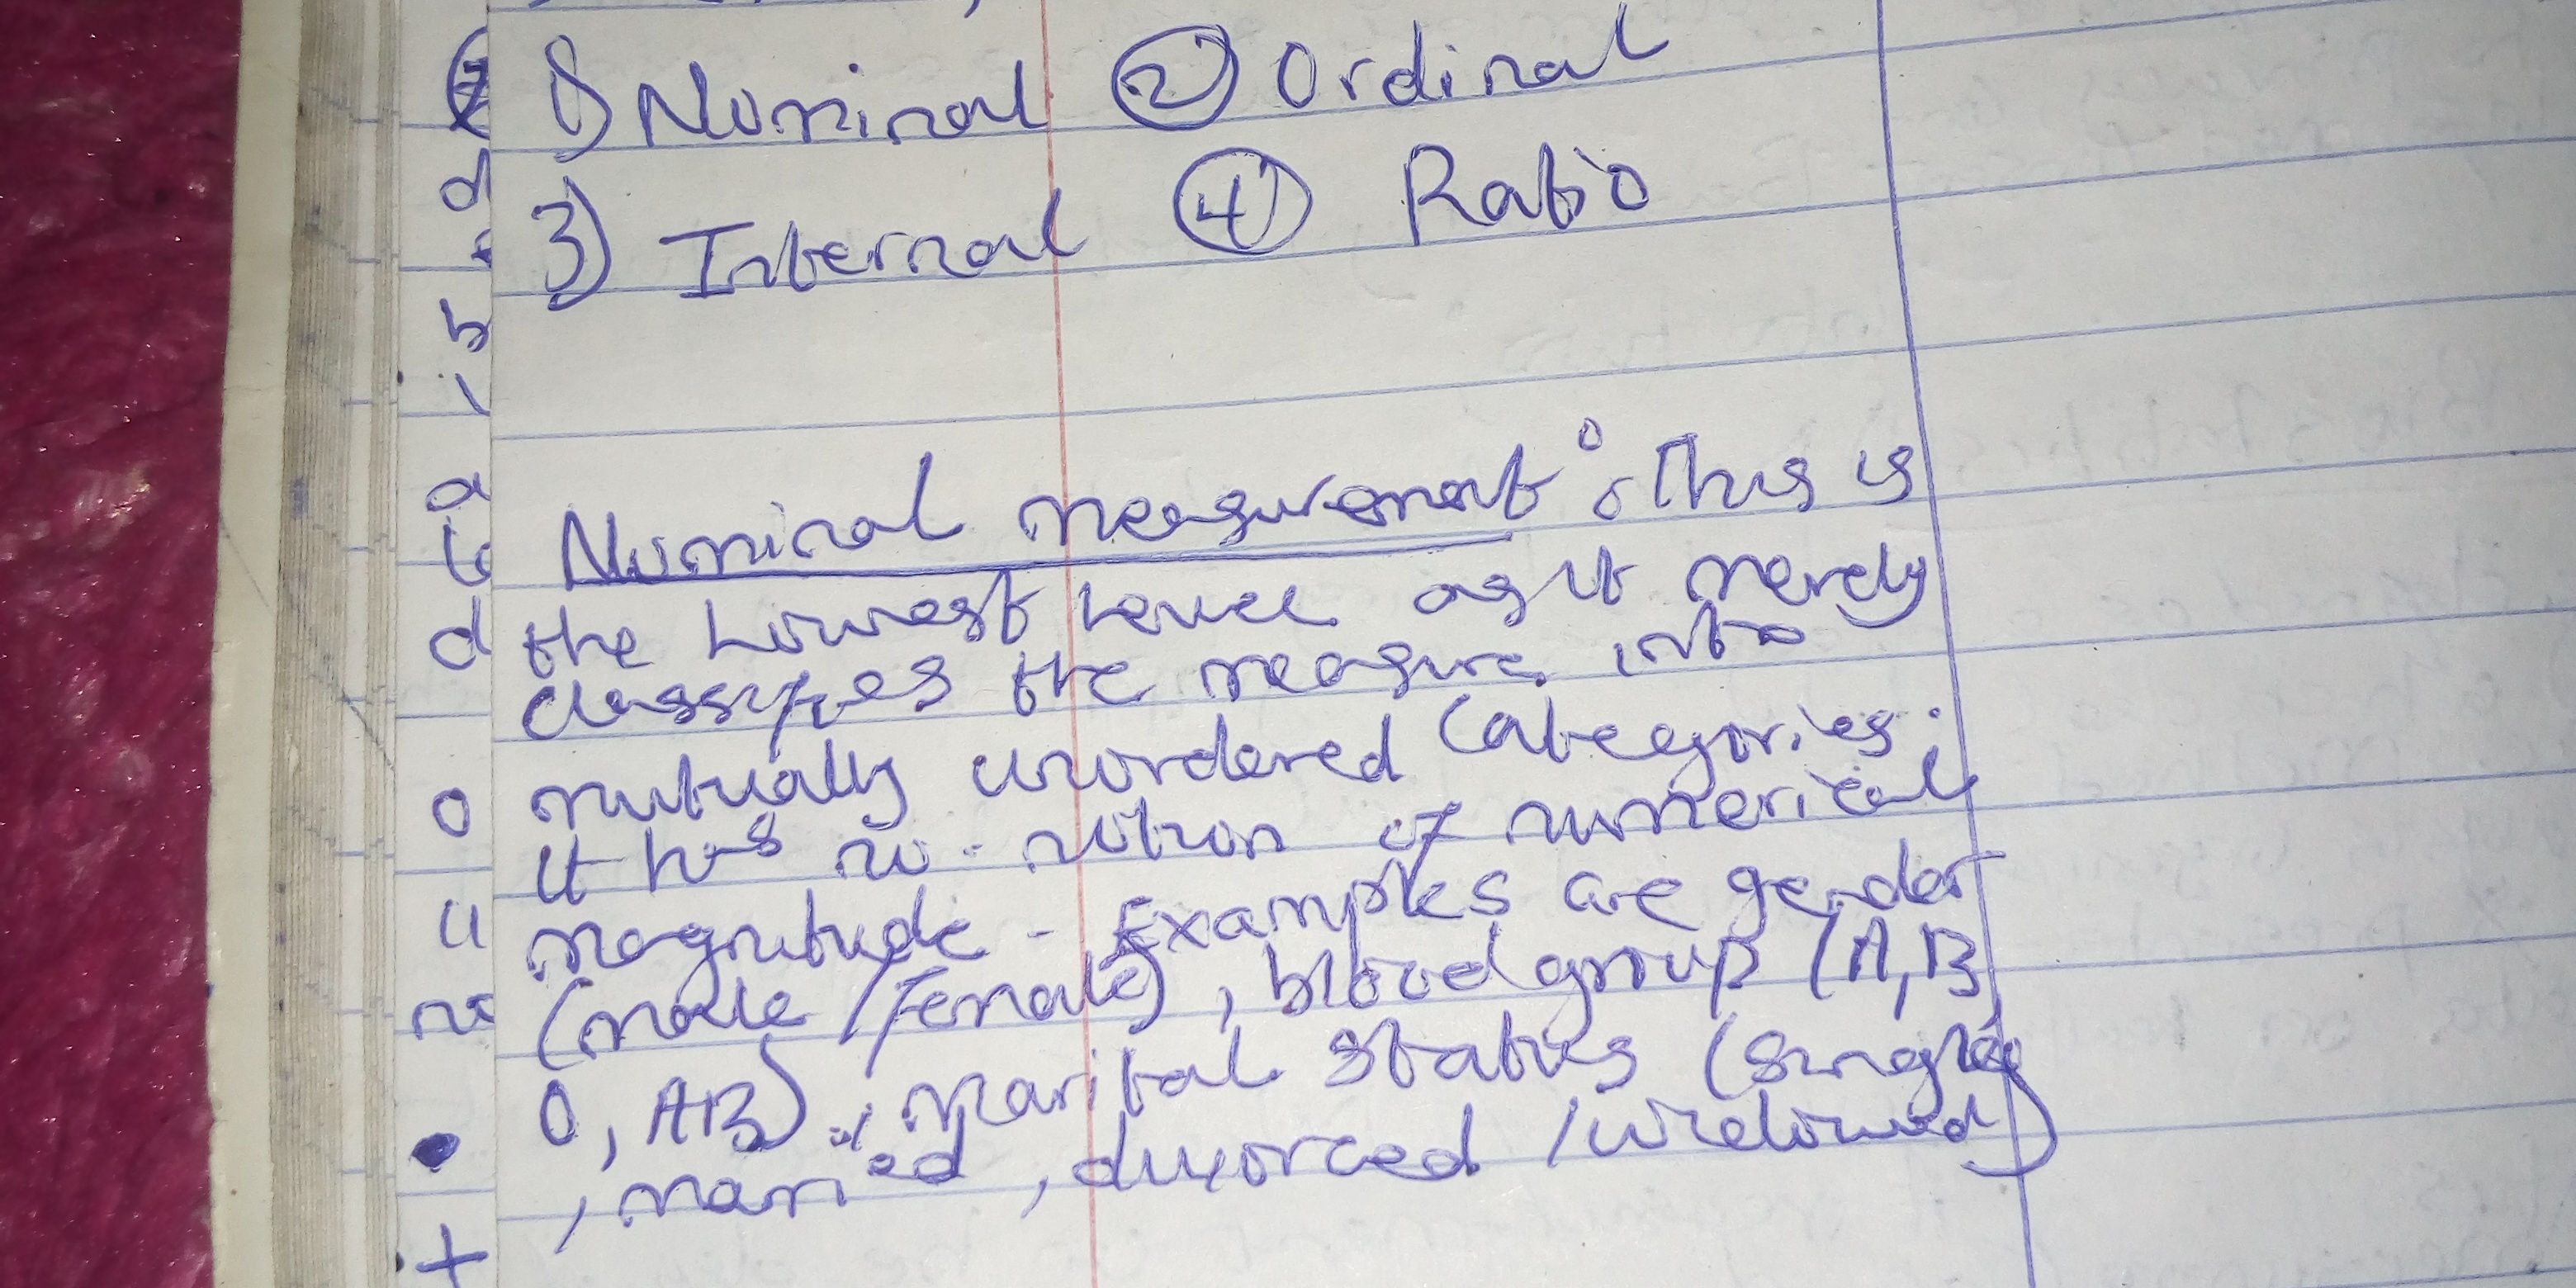 1) Nominal (2) Ordinal
3) Internal (4) Ratio
Nominal measurement : This is
the Lowest level as it merely
classifies the measure into
mutually unordered Categories.
it has no notion of numerical
magnitude - Examples are gender
(male/Female), blood group (A, B,
O, AB), Marital status (single
, married, divorced/widowed)